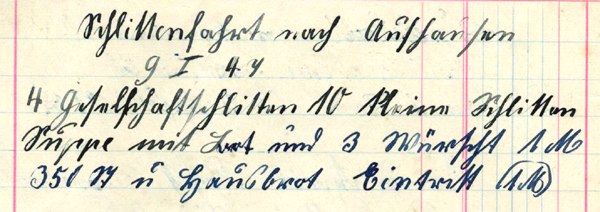 Schlittenfahrt nach Aufhausen
9 I 44
4 Geselschaftschlitten 10 Kleine Schlitten
Suppe mit Brot und 3 Würscht 1 M
350 St u Hausbrot Eintritt (1M)